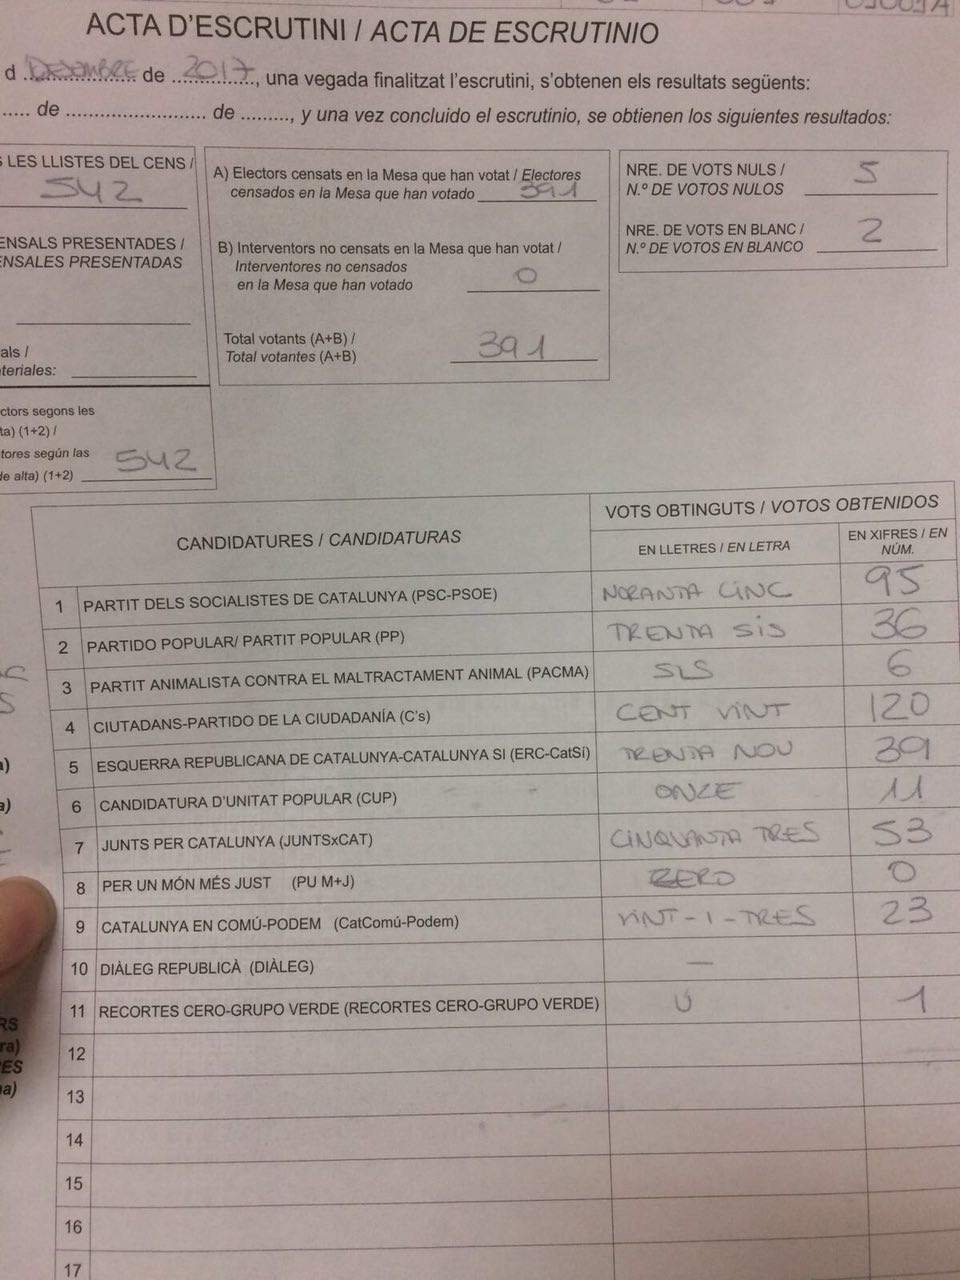 ACTA D'ESCRUTINI / ACTA DE ESCRUTINIO
d DESEMBRE de 2017, una vegada finalitzat l'escrutini, s'obtenen els resultats següents:
..... de ........................ de ........., y una vez concluido el escrutinio, se obtienen los siguientes resultados:
S LES LLISTES DEL CENS /
542
ENSALS PRESENTADES /
ENSALES PRESENTADAS
als /
teriales:
ctors segons les
ta) (1+2) /
tores según las
de alta) (1+2) 542
A) Electors censats en la Mesa que han votat / Electores
censados en la Mesa que han votado 391
B) Interventors no censats en la Mesa que han votat /
Interventores no censados
en la Mesa que han votado 0
Total votants (A+B) /
Total votantes (A+B) 391
NRE. DE VOTS NULS / 5
N.º DE VOTOS NULOS
NRE. DE VOTS EN BLANC / 2
N.º DE VOTOS EN BLANCO
CANDIDATURES / CANDIDATURAS
VOTS OBTINGUTS / VOTOS OBTENIDOS
EN LLETRES / EN LETRA
EN XIFRES / EN
NÚM.
1 PARTIT DELS SOCIALISTES DE CATALUNYA (PSC-PSOE) NORANTA CINC 95
2 PARTIDO POPULAR/ PARTIT POPULAR (PP) TRENTA SIS 36
3 PARTIT ANIMALISTA CONTRA EL MALTRACTAMENT ANIMAL (PACMA) SIS 6
4 CIUTADANS-PARTIDO DE LA CIUDADANÍA (C's) CENT VINT 120
5 ESQUERRA REPUBLICANA DE CATALUNYA-CATALUNYA SI (ERC-CatSí) TRENTA NOU 39
6 CANDIDATURA D'UNITAT POPULAR (CUP) ONZE 11
7 JUNTS PER CATALUNYA (JUNTSxCAT) CINQUANTA TRES 53
8 PER UN MÓN MÉS JUST (PU M+J) ZERO 0
9 CATALUNYA EN COMÚ-PODEM (CatComú-Podem) VINT-I-TRES 23
10 DIÀLEG REPUBLICÀ (DIÀLEG) —
11 RECORTES CERO-GRUPO VERDE (RECORTES CERO-GRUPO VERDE) Ú 1
12
13
14
15
16
17
a)
a)
RS
ra)
ES
na)